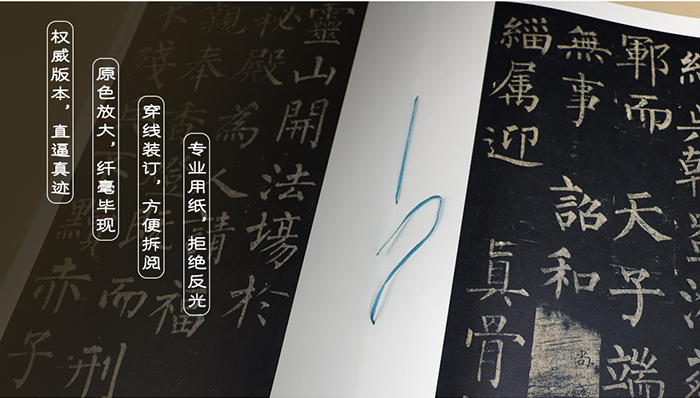 权威版本，直逼真迹
原色放大，纤毫毕现
穿线装订，方便拆阅
专业用纸，拒绝反光
鄆而天子端
無事詔和尚
緇属迎真骨
靈山開法場於
秘殿為人請福
親奉香燈既而刑
殘黷赤子